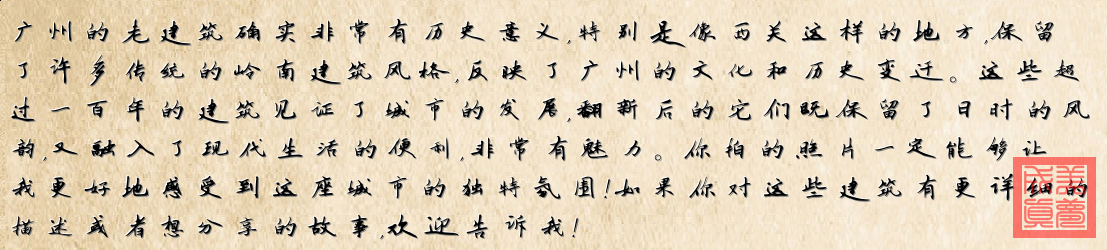 广州的老建筑确实非常有历史意义,特别是像西关这样的地方,保留
了许多传统的岭南建筑风格,反映了广州的文化和历史变迁。这些超
过一百年的建筑见证了城市的发展,翻新后的它们既保留了日时的风
韵,又融入了现代生活的便利,非常有魅力。你拍的照片一定能够让
我更好地感受到这座城市的独特氛围!如果你对这些建筑有更详细的
描述或者想分享的故事,欢迎告诉我!